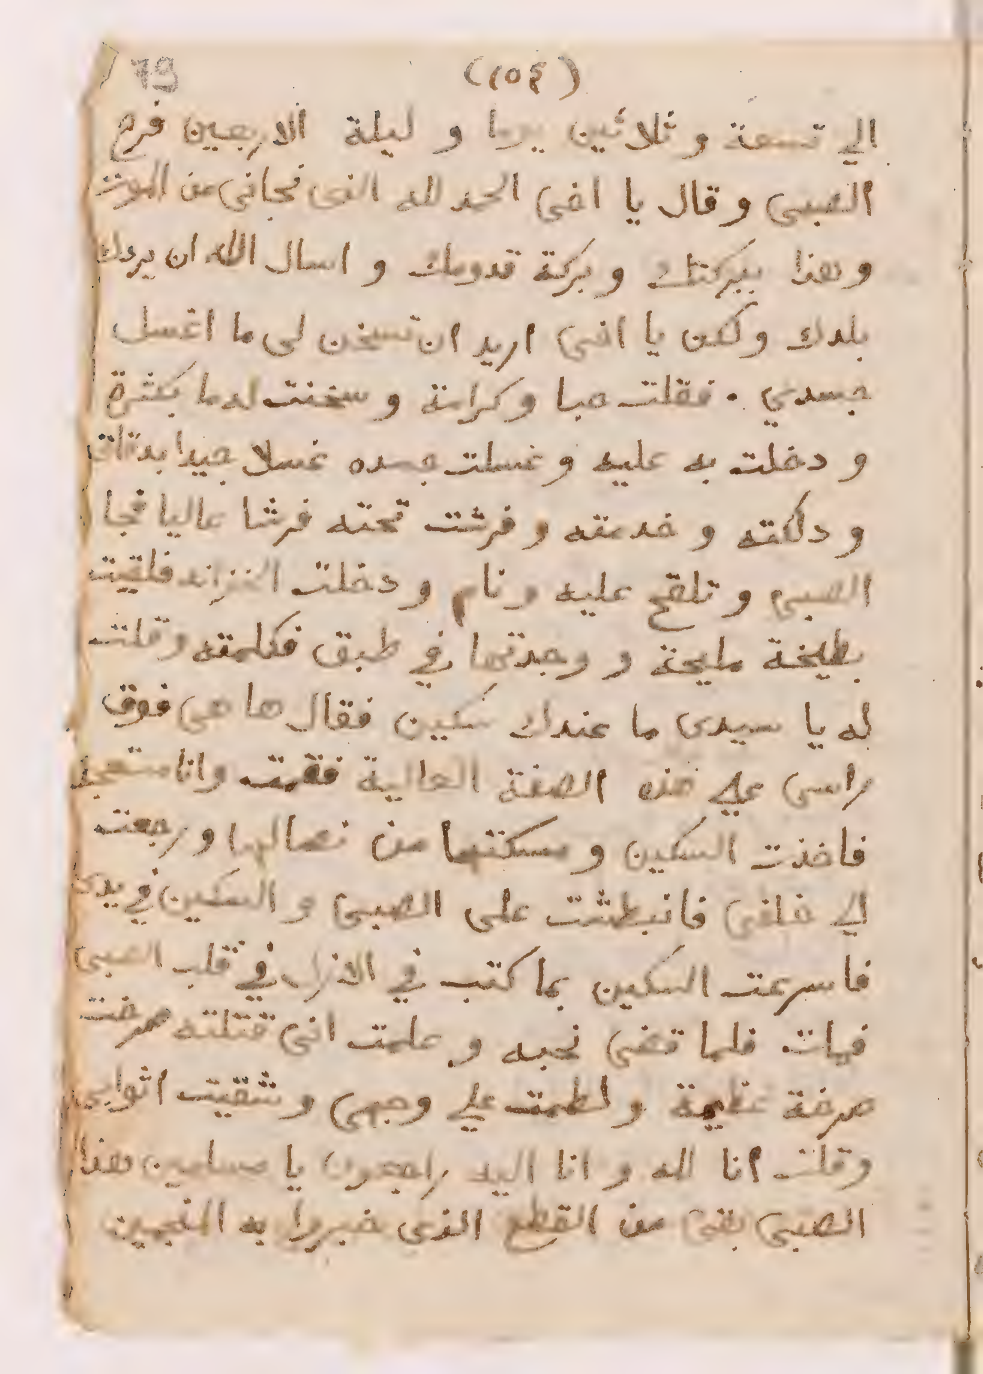 79
(١٥٤)
الي تسعة و ثلاثين يوما و ليلة الاربعين فرح
الصبى و قال يا اخى الحمد لله الذى نجانى من الموت
و هذا ببركتك و بركة قدومك و اسال الله ان يردك
بلدك و لكن يا اخى اريد ان تسخن لى ما اغسل
جسدي . فقلت حبا و كرامة و سخنت له ما بكثرة
و دخلت به عليه و غسلت جسده غسلا جيدا بدقاق
و دلكته و خدمته و فرشت تحته فرشا عاليا فجا
الصبى و تلقح عليه و نام و دخلت الخزانه فلقيت
بطيخة مليحة و وجدتها في طبق فكلمته و قلت
له يا سيدى ما عندك سكين فقال ها هى فوق
راسى علي هذه الصفة العالية فقمت و انا مستعجل
فاخذت السكين و مسكتها من نصالها و رجعت
الي خلفى فانبطشت على الصبى و السكين في يدى
فاسرعت السكين بما كتب في الازل في قلب الصبى
فمات فلما قضى نحبه و علمت انى قتلته صرخت
صرخة عظيمة و لطمت علي وجهى و شقيت اثوابى
و قلت انا لله و انا اليه راجعون يا مسلمين هذا
الصبى بقى من القطع الذى خبروا به المنجمين